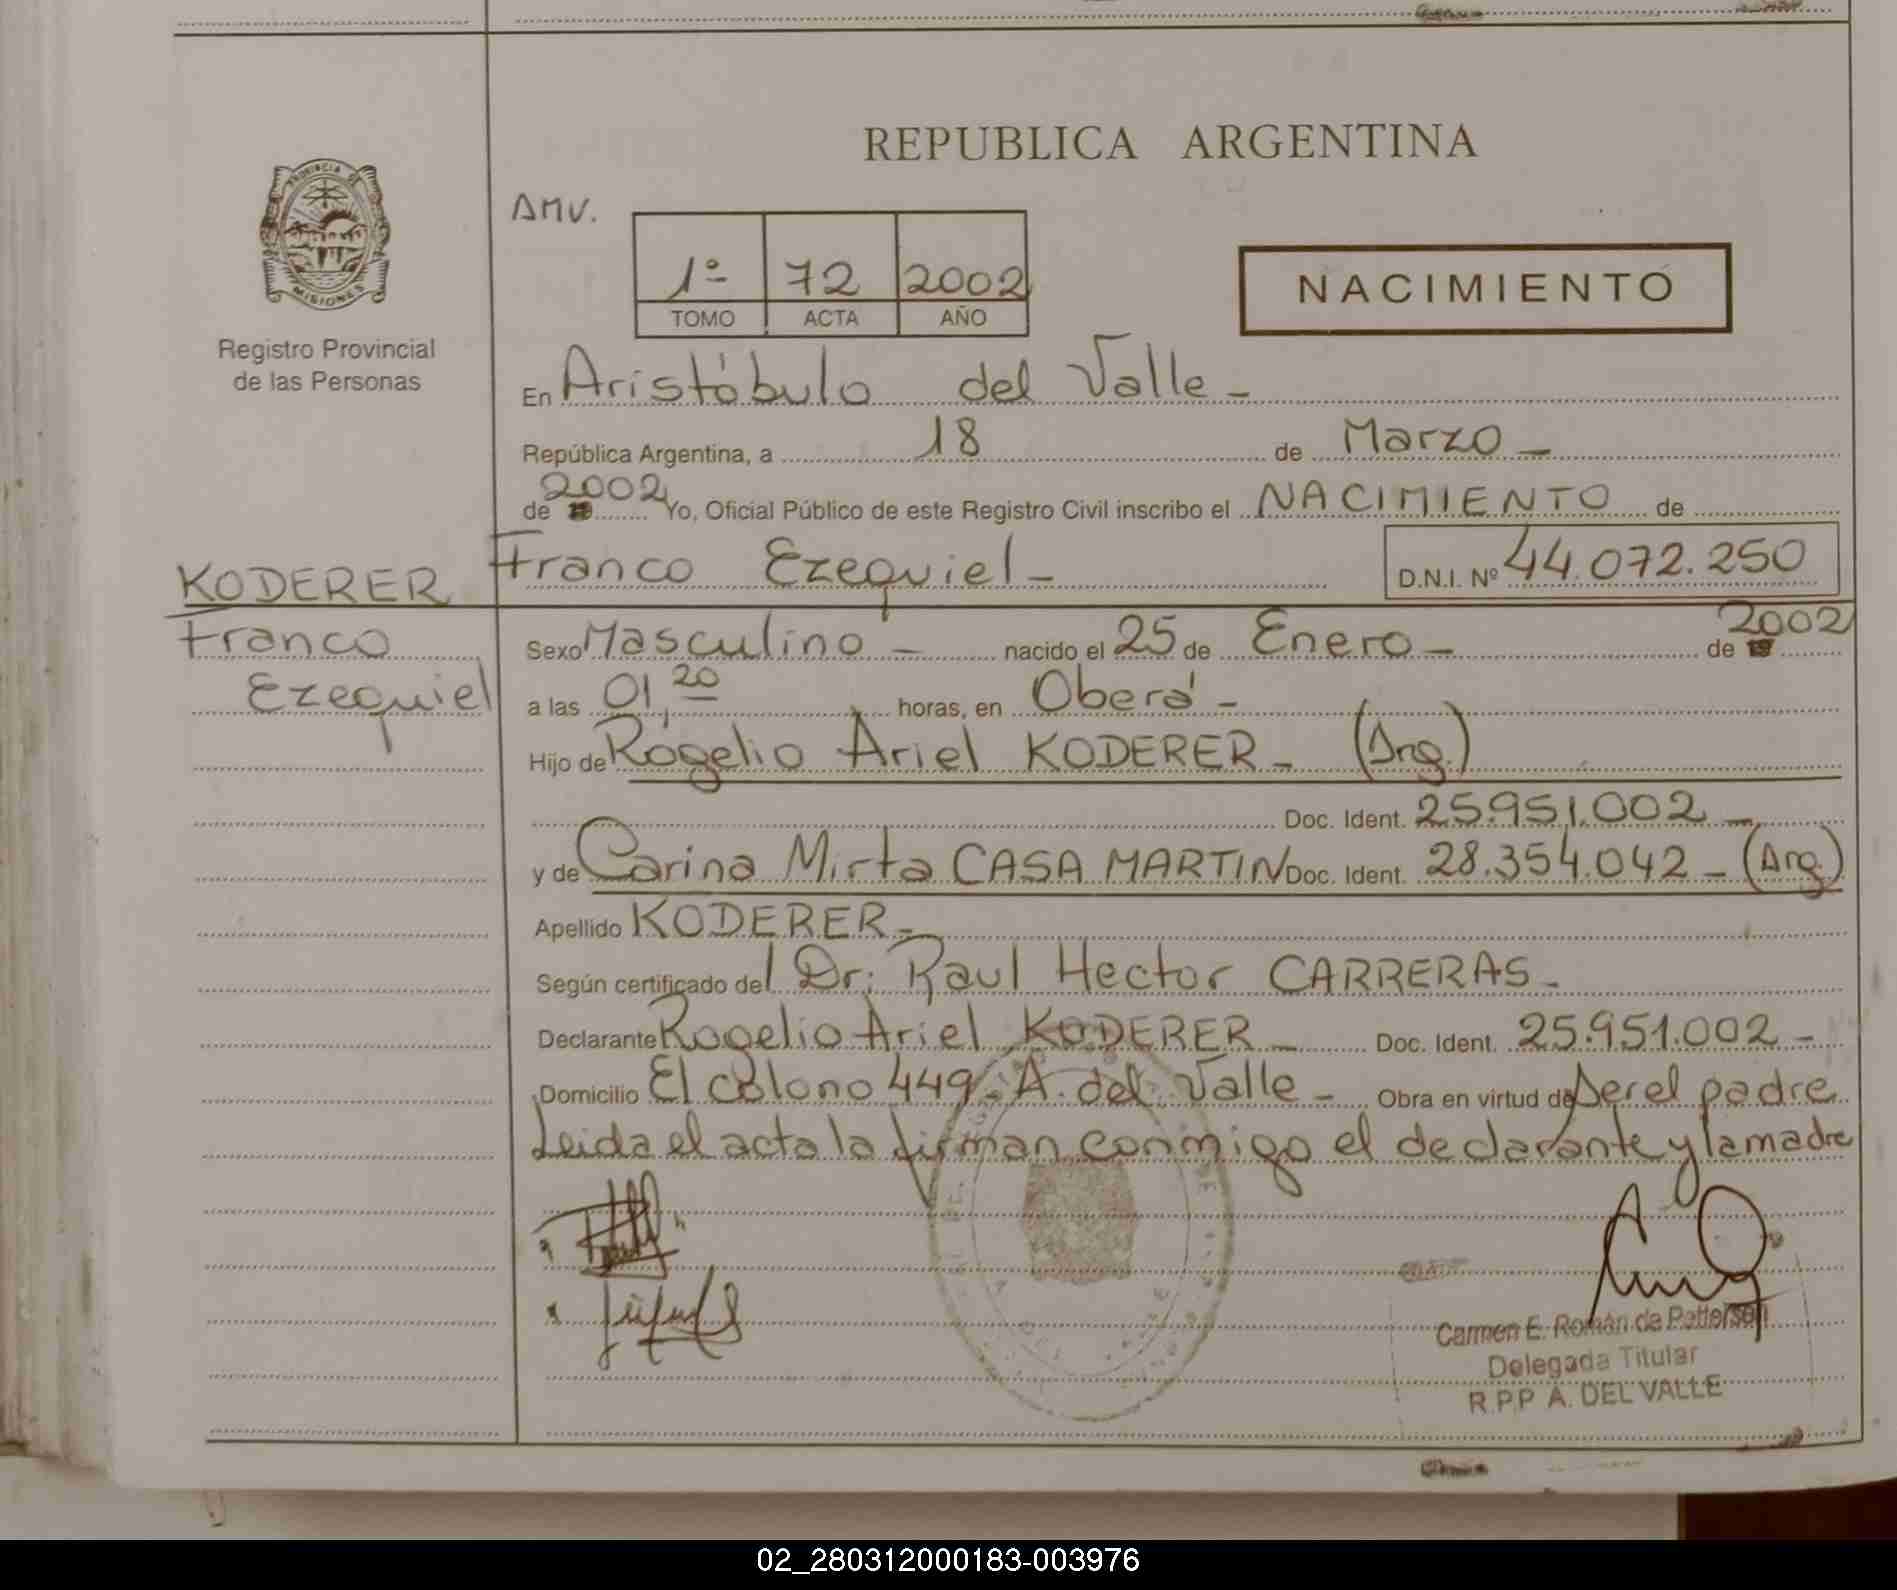 REPUBLICA ARGENTINA
PROVINCIA DE
MISIONES
Registro Provincial
de las Personas
AMV.
1º 72 2002
TOMO ACTA AÑO
NACIMIENTO
En Aristóbulo del Valle -
República Argentina, a 18 de Marzo -
de 2002 Yo, Oficial Público de este Registro Civil inscribo el NACIMIENTO de
Franco Ezequiel - D.N.I. Nº 44.072.250
KODERER
Franco
Ezequiel
Sexo Masculino - nacido el 25 de Enero - de 2002
a las 01,20 horas, en Oberá -
Hijo de Rogelio Ariel KODERER - (Arg.)
Doc. Ident. 25.951.002 -
y de Carina Mirta CASA MARTIN Doc. Ident. 28.354.042 - (Arg.)
Apellido KODERER -
Según certificado del Dr. Raul Hector CARRERAS -
Declarante Rogelio Ariel KODERER - Doc. Ident. 25.951.002 -
Domicilio El Colono 449 - A. del Valle - Obra en virtud de Ser el padre
Leida el acta la firman conmigo el declarante y la madre
Carmen E. Román de Petterson
Delegada Titular
R.P.P A. DEL VALLE
02_280312000183-003976